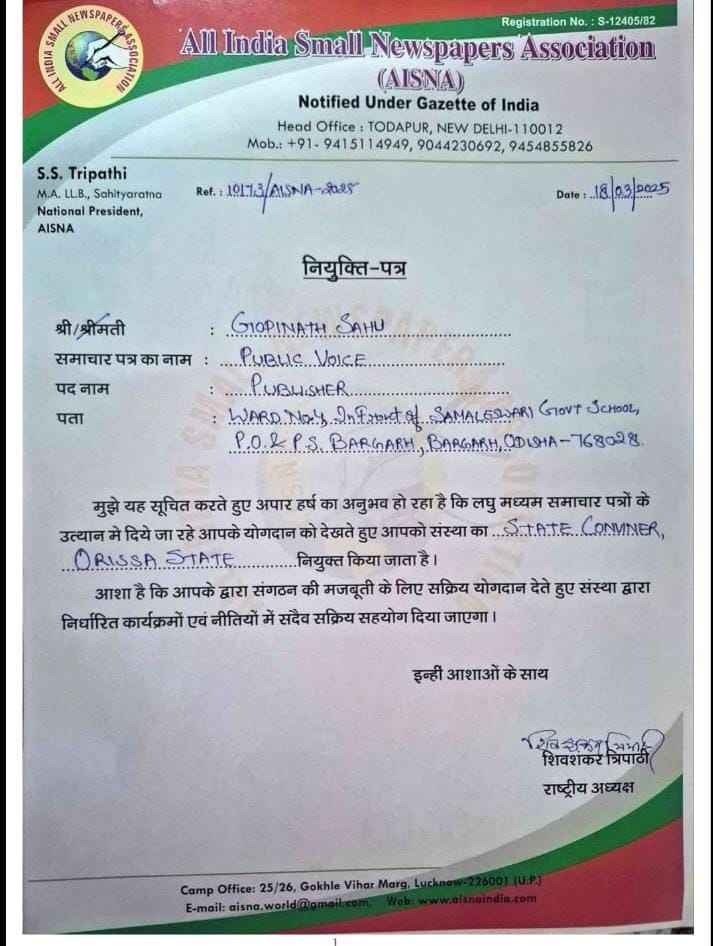 ALL INDIA SMALL NEWSPAPERS ASSOCIATION
Registration No. : S-12405/82
All India Small Newspapers Association
(AISNA)
Notified Under Gazette of India
Head Office : TODAPUR, NEW DELHI-110012
Mob.: +91- 9415114949, 9044230692, 9454855826
S.S. Tripathi
M.A. LL.B., Sahityaratna
National President,
AISNA
Ref. : 10173/AISNA-2025
Date : 18/03/2025
नियुक्ति-पत्र
श्री/श्रीमती : GOPINATH SAHU
समाचार पत्र का नाम : PUBLIC VOICE
पद नाम : PUBLISHER
पता : WARD No-4, In Front of SAMALESWARI GOVT SCHOOL,
P.O. & P.S. BARGARH, BARGARH, ODISHA-768028.
मुझे यह सूचित करते हुए अपार हर्ष का अनुभव हो रहा है कि लघु मध्यम समाचार पत्रों के
उत्थान मे दिये जा रहे आपके योगदान को देखते हुए आपको संस्था का STATE CONVINER,
ORISSA STATE नियुक्त किया जाता है।
आशा है कि आपके द्वारा संगठन की मजबूती के लिए सक्रिय योगदान देते हुए संस्था द्वारा
निर्धारित कार्यक्रमों एवं नीतियों में सदैव सक्रिय सहयोग दिया जाएगा।
इन्हीं आशाओं के साथ
शिवशंकर त्रिपाठी
राष्ट्रीय अध्यक्ष
Camp Office: 25/26, Gokhle Vihar Marg, Lucknow-226001 (U.P.)
E-mail: aisna.world@gmail.com, Web: www.aisnaindia.com
1